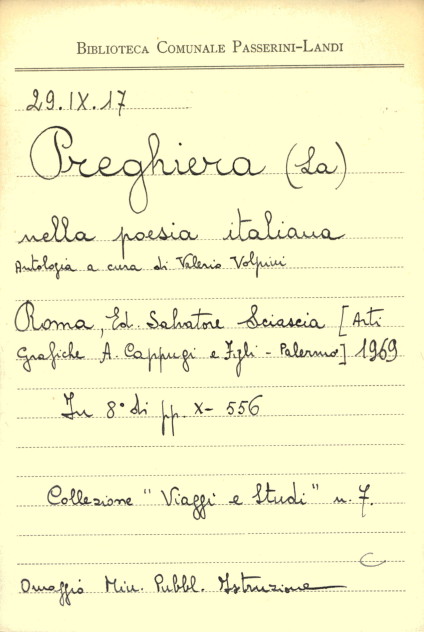 BIBLIOTECA COMUNALE PASSERINI-LANDI
29.IX.17
Preghiera (La)
nella poesia italiana
Antologia a cura di Valerio Volpini
Roma, Ed. Salvatore Sciascia [Arti
Grafiche A. Cappugi e Figli - Palermo] 1969
In 8° di pp. X- 556
Collezione "Viaggi e Studi" n. 7.
Omaggio Min. Pubbl. Istruzione